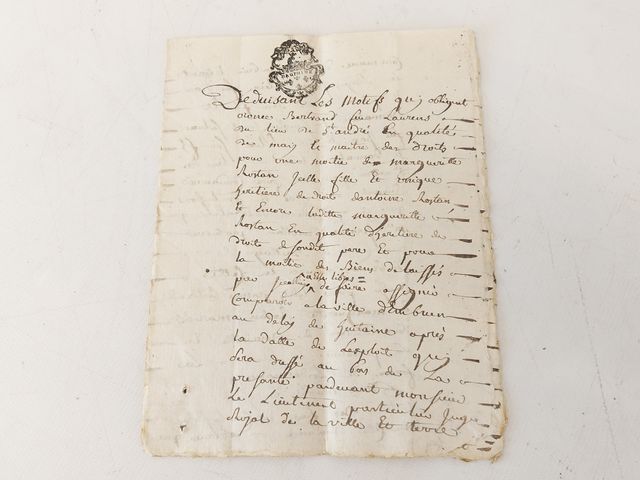 Deduisant Les Motifs quy obligent
Bertrand feu Laurens
du lieu de St andré En qualité
de mary le maitre des droits
pour une moitie de margueritte
Rostan fille Et unique
heritiere de droit dantoine Rostan
Et Encore laditte marguerite
Rostan En qualité dheritiere de
droits de sondit pere Et pour
la moitie des Biens delaissés
par de faire assigné
Comparoir a la ville d'Embrun
au delay de huitaine après
la datte de Lexploit quy
sera dressé au bas de La
presante pardevant monsieur
Le Lieutenent particulier Juge
Royal de la ville Et terre